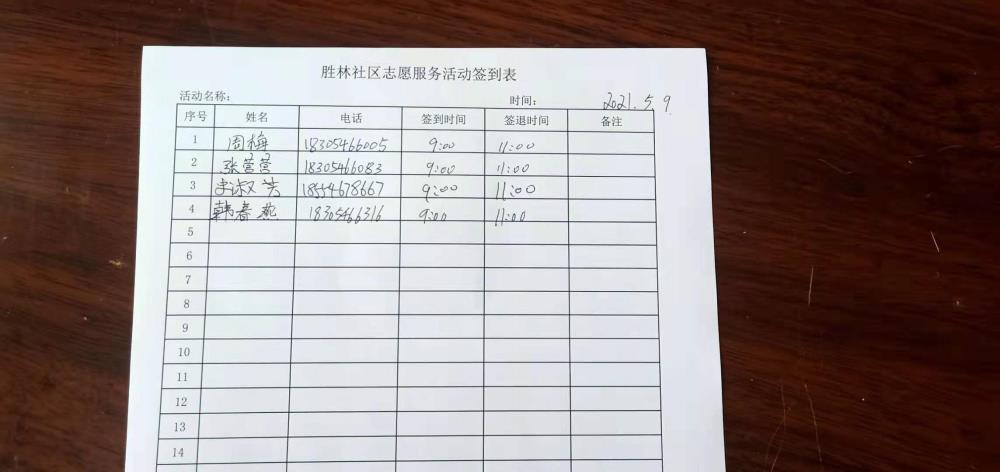 胜林社区志愿服务活动签到表
活动名称： 时间： 2021.5.9
序号 姓名 电话 签到时间 签退时间 备注
1 周梅 18305466005 9:00 11:00
2 张萱萱 18305466083 9:00 11:00
3 李淑芳 18554678667 9:00 11:00
4 韩春燕 18305466316 9:00 11:00
5
6
7
8
9
10
11
12
13
14